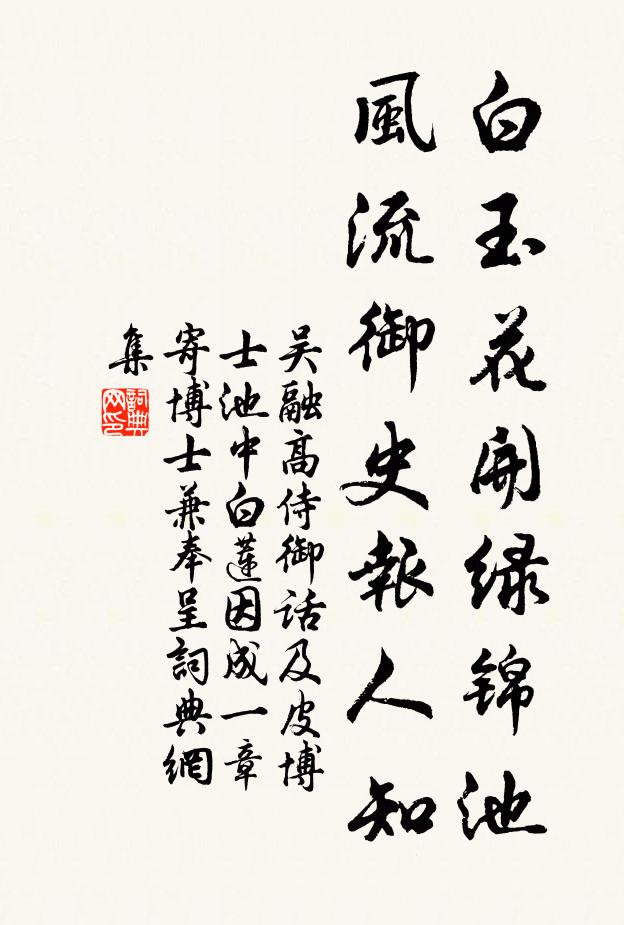 白玉花開緑錦池
風流御史報人知
吴融高侍御話及皮博
士池中白蓮因成一章
寄博士兼奉呈詞典網
集
詞典
网印